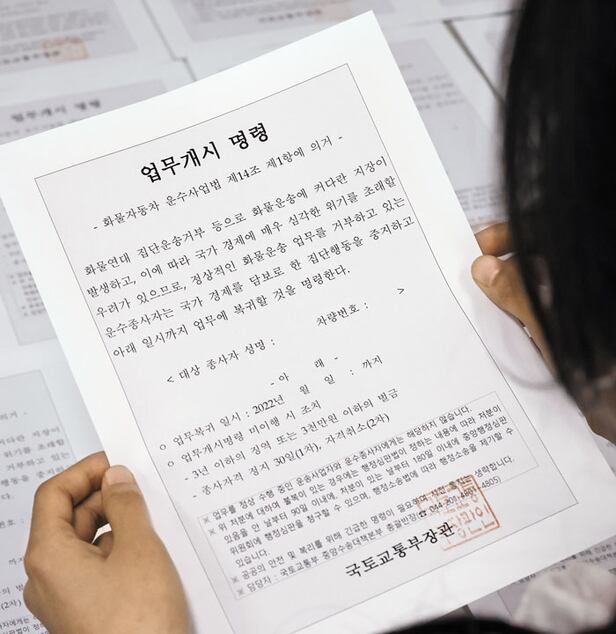 업무개시 명령
- 화물자동차 운수사업법 제14조 제1항에 의거 -
화물연대 집단운송거부 등으로 화물운송에 커다란 지장이
발생하고, 이에 따라 국가 경제에 매우 심각한 위기를 초래할
우려가 있으므로, 정상적인 화물운송 업무를 거부하고 있는
운수종사자는 국가 경제를 담보로 한 집단행동을 중지하고
아래 일시까지 업무에 복귀할 것을 명령한다.
< 대상 종사자 성명 : 차량번호 : >
- 아 래 -
ㅇ 업무복귀 일시 : 2022년 월 일 : 까지
ㅇ 업무개시명령 미이행 시 조치
- 3년 이하의 징역 또는 3천만원 이하의 벌금
- 종사자격 정지 30일(1차), 자격취소(2차)
※ 업무를 정상 수행 중인 운송사업자와 운수종사자에게는 해당하지 않습니다.
※ 위 처분에 대하여 불복이 있는 경우에는 행정심판법이 정하는 내용에 따라 처분이
있음을 안 날부터 90일 이내에, 처분이 있는 날부터 180일 이내에 중앙행정심판
위원회에 행정심판을 청구할 수 있으며, 행정소송법에 따라 행정소송을 제기할 수
있습니다.
※ 공공의 안전 및 복리를 위해 긴급한 명령이 필요하여 생략합니다.
※ 담당자 : 국토교통부 중앙수송대책본부 총괄반장(☎ 044-201-4805)
국토교통부장관
업무개시 명령